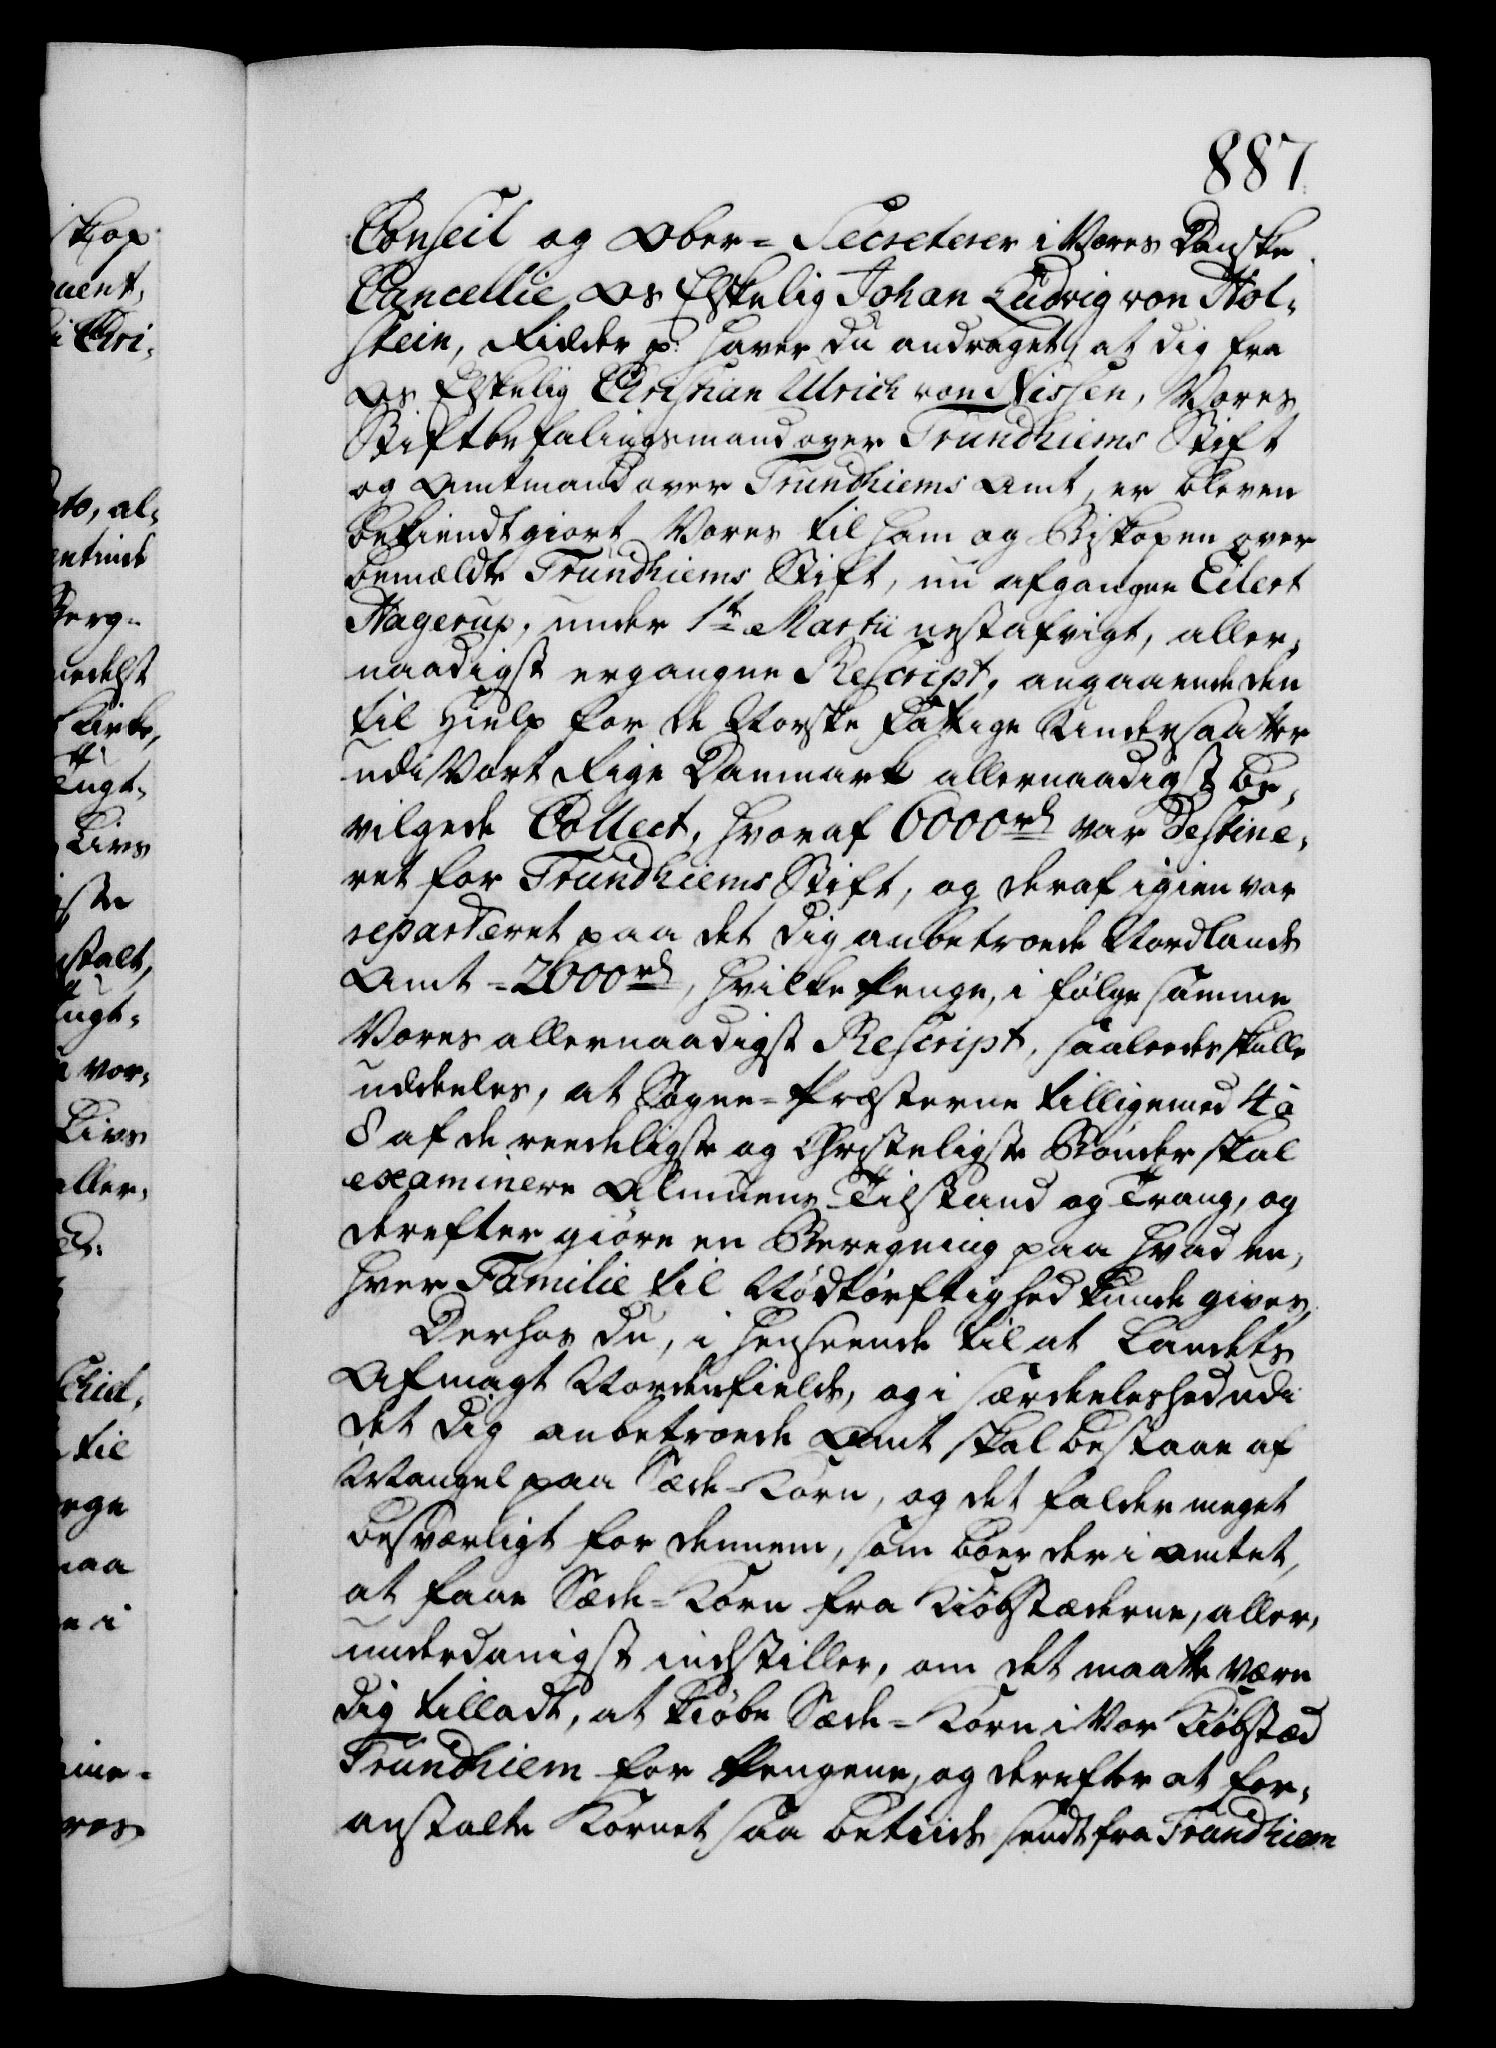 887
Conseil og Ober-Secreterer i Vores Danske
Cancellie Os Elskelig Johan Ludvig von Hol-
stein, Ridder p: haver du andraget, at dig fra
Os Elskelig Christian Ulrich von Nissen, Vores
Stiftbefalingsmand over Trundhiems Stift
og Amtmand over Trundhiems Amt, er bleven
bekiendtgiort Vores til ham og Biskopen over
bemældte Trundhiems Stift, nu afgangne Eilert
Hagerup, under 1te Martii nestafvigt, aller-
naadigst ergangne Rescript, angaaende den
til Hielp for de Norske fattige Undersaatter
udi Vort Rige Danmark allernaadigst be-
vilgede Collect, hvoraf 6000 rd var destine-
ret for Trundhiems Stift, og deraf igien var
reparteret paa det dig anbetroede Nordlands
Amt = 2000 rd, hvilke Penge, i følge samme
Vores allernaadigst Rescript, saaledes skulle
uddeeles, at Sogne-Præsterne tilligemed 4 à
8 af de reedeligste og Christeligste Bönder skal
examinere Almuens Tilstand og Trang, og
derefter giöre en Beregning paa hvad en-
hver Familie til Nödtörftighed kunde gives,
Derhos du, i Henseende til at Landets
Afmagt Nordenfields, og i særdeleshed udi
det dig anbetroede Amt skal bestaae af
Mangel paa Sæde-Korn, og det falder meget
besværligt for dennem, som boer der i Amtet,
at faae Sæde-Korn fra Kiöbstæderne, aller-
underdanigst indstiller, om det maatte være
dig tilladt, at kiöbe Sæde-Korn i Vor Kiöbstæd
Trundhiem for Pengene, og derefter at for-
anstalte Kornet saa betiids sendt fra Trundhiem